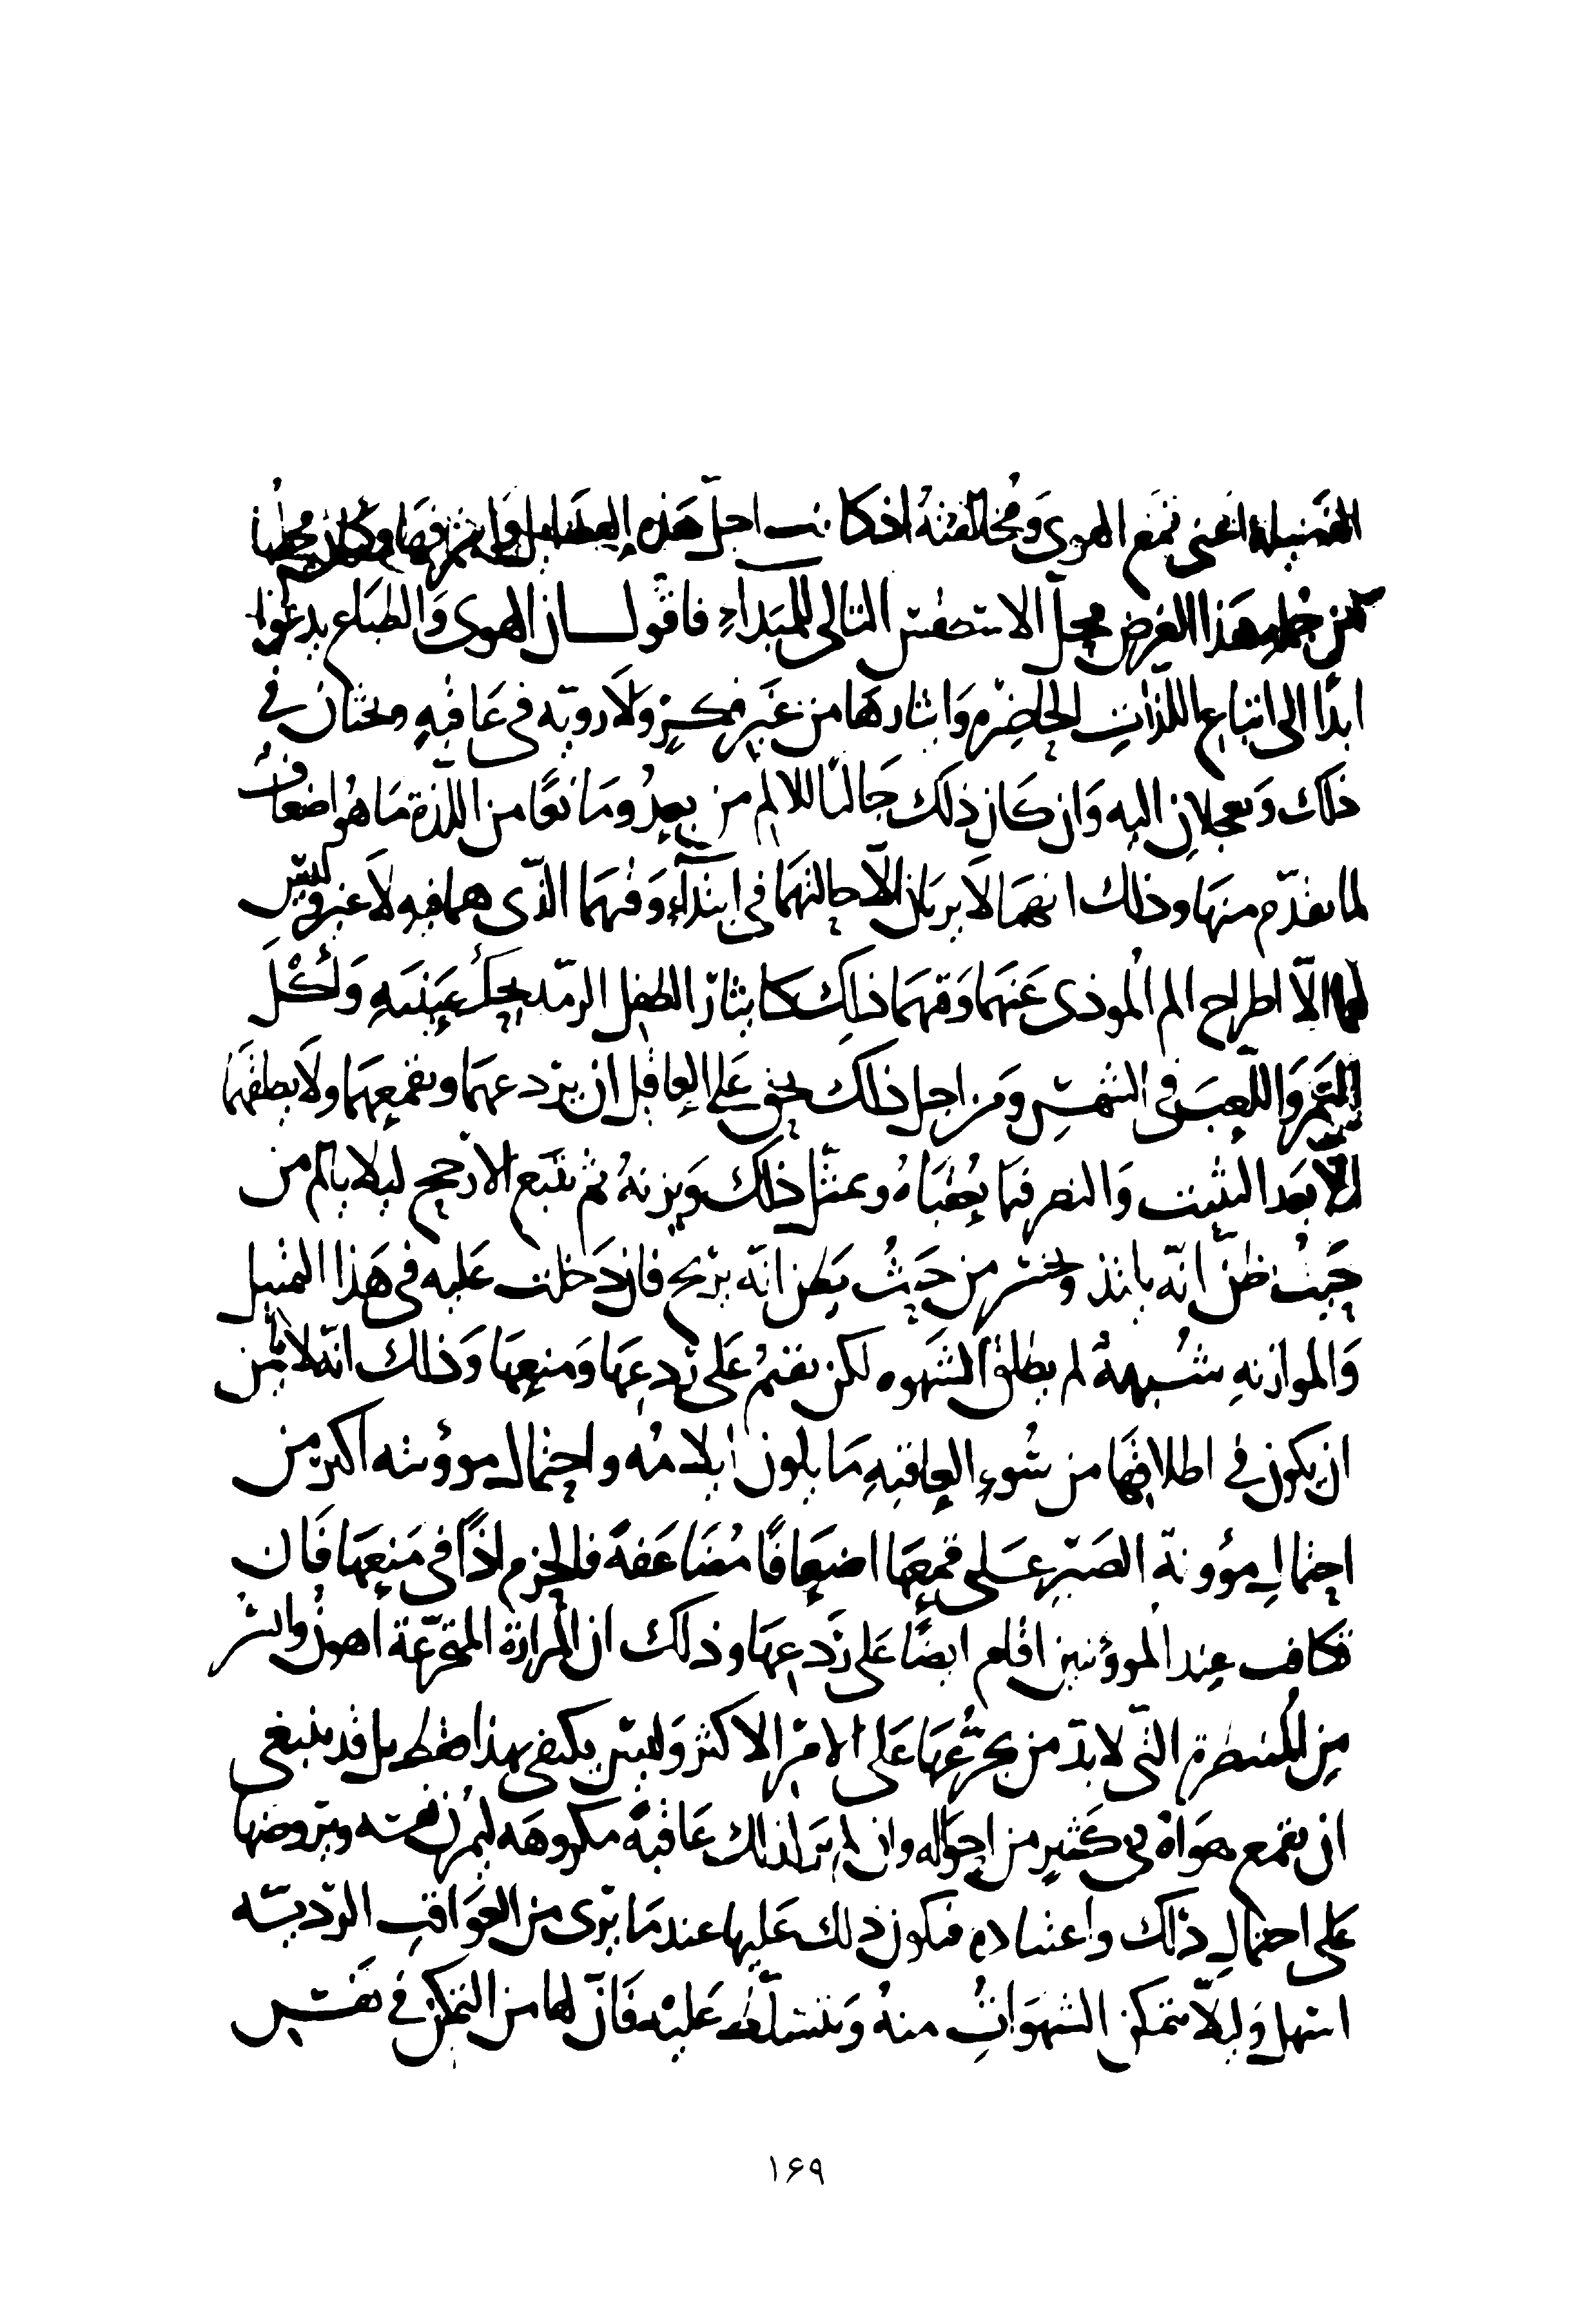 الفضيلة اعنى قمع الهوى وَمُخالفتهُ اذ كانت اجلّ هَذه الفضايل وَاشرفهَا وكان محلها
من جملة هَذا الغرض محلّ الاستقص التالى للمبدَاءِ فاقول ان الهوى وَالطبَاع يدعُوان
ابدًا الى اتباع اللذاتِ الحاضِرَه وَايثارهَا من غَير فِكرٍ وَلاَ رويّه فى عَاقبهٍ ويحثان فى
ذلك وَيعجلانِ اليه وَان كَان ذلك جَالبًا للالم من بعدُ ومَانعًا من اللذة مَا هُو اضعافُ
لما تقدّم منهَا وذلك انهمَا لاَ يريَان الاّ حالتهمَا فى ابتدآءِ وَقتهمَا الذّى هما فيهِ لاَ غير وَليس
لهما الاّ اطراح الم المُوذى عَنهمَا وَقتهمَا ذلِك كايثار الطفل الرمد لحكّ عَينيه وَاكْلَ
التَمرَ وَاللعِبَ فى الشمسِ وَمن اجل ذلك يحق عَلى العاقل ان يردعهمَا ويقمعِهمَا ولاَ يطلقهُمَا
الاّ بَعدَ التثبت وَالنظر فيمَا يُعقبَاهُ ويمثّل ذلك وَيزنهُ ثم يتّبع الارجح ليلا يالم من
حَيثُ ظنّ انّه يلتذ ويخسر من حَيثُ يَظن انّه يربح فان دَخلت عَليه فى هَذا التمثيل
وَالموازنهِ شُبهةٌ لم يطلق الشَهوه لكن يقيمُ عَلى رَدعِهَا وَمنعِهَا وَذلك انّه لا يامَن
ان يكون فى اطلاقهَا من سُوءِ العاقبهِ مَا يكون ايلامُه واحتمال موؤنته اكثر من
احتمالِ مؤونة الصَبرِ عَلى قمعِهَا اضعَافًا مُضَاعَفة فالحزم اذًا فى مَنعِهَا فَان
تكافت عِند المُوؤنتين اقام ايضًا عَلى رَدعِهَا وذلك ان المرارة المتجرّعة اهون وايسر
مِن المُنتظرة التّى لا بدّ من تجرُّعِهَا عَلى الامر الاكثر وَليس يكتفى بهذا فقط بل قد ينبغى
ان يقمع هوَاهُ فى كَثيرٍ من احوَاله وان لم يَر لذلك عَاقبهً مكروهَه ليُمرّن نفسه ويَروضهَا
عَلى احتمالِ ذلك واعتياده فيكون ذلك عَليها عند مَا يَرى من العَوَاقبِ الرّديّه
اسهل وَليلاّ تتمكن الشهوَاتُ منهُ وَتتسلّط عَليْه فَانّ لها من التمكن فى نفسِ
١۶٩